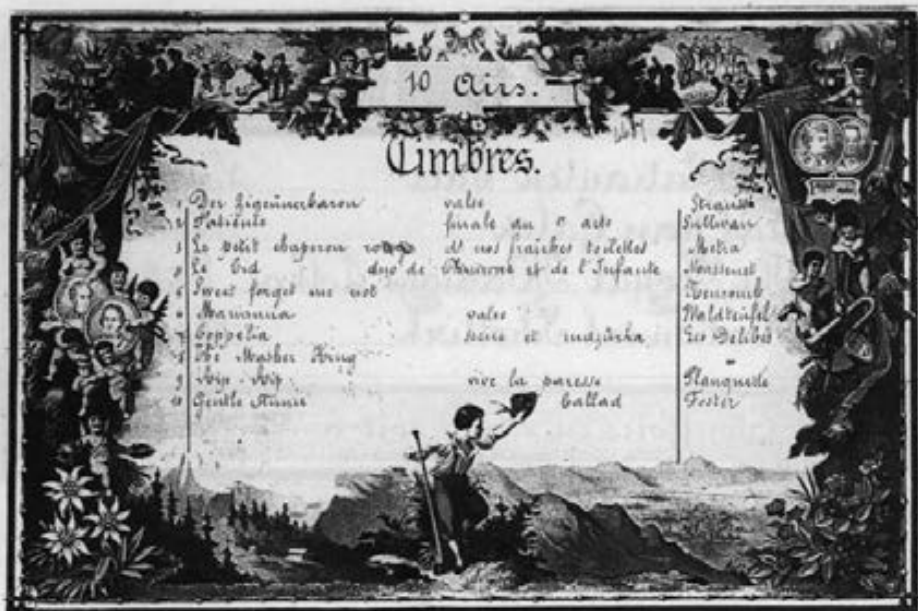 10 Airs.
Timbres.
1 Der Zigeunerbaron valse Strauss
2 Patience finale du acte Sullivan
3 Le petit chaperon rouge d' nos fraîches toilettes Metra
4 Le Cid duo de Chimène et de l'Infante Massenet
5 Sweet forget me not Newcomb
6 Mananna valse Waldteufel
7 Coppelia scène et mazurka Leo Delibes
8 The Masher King "
9 Rip-Rip vive la paresse Planquette
10 Gentle Annie Ballad Foster